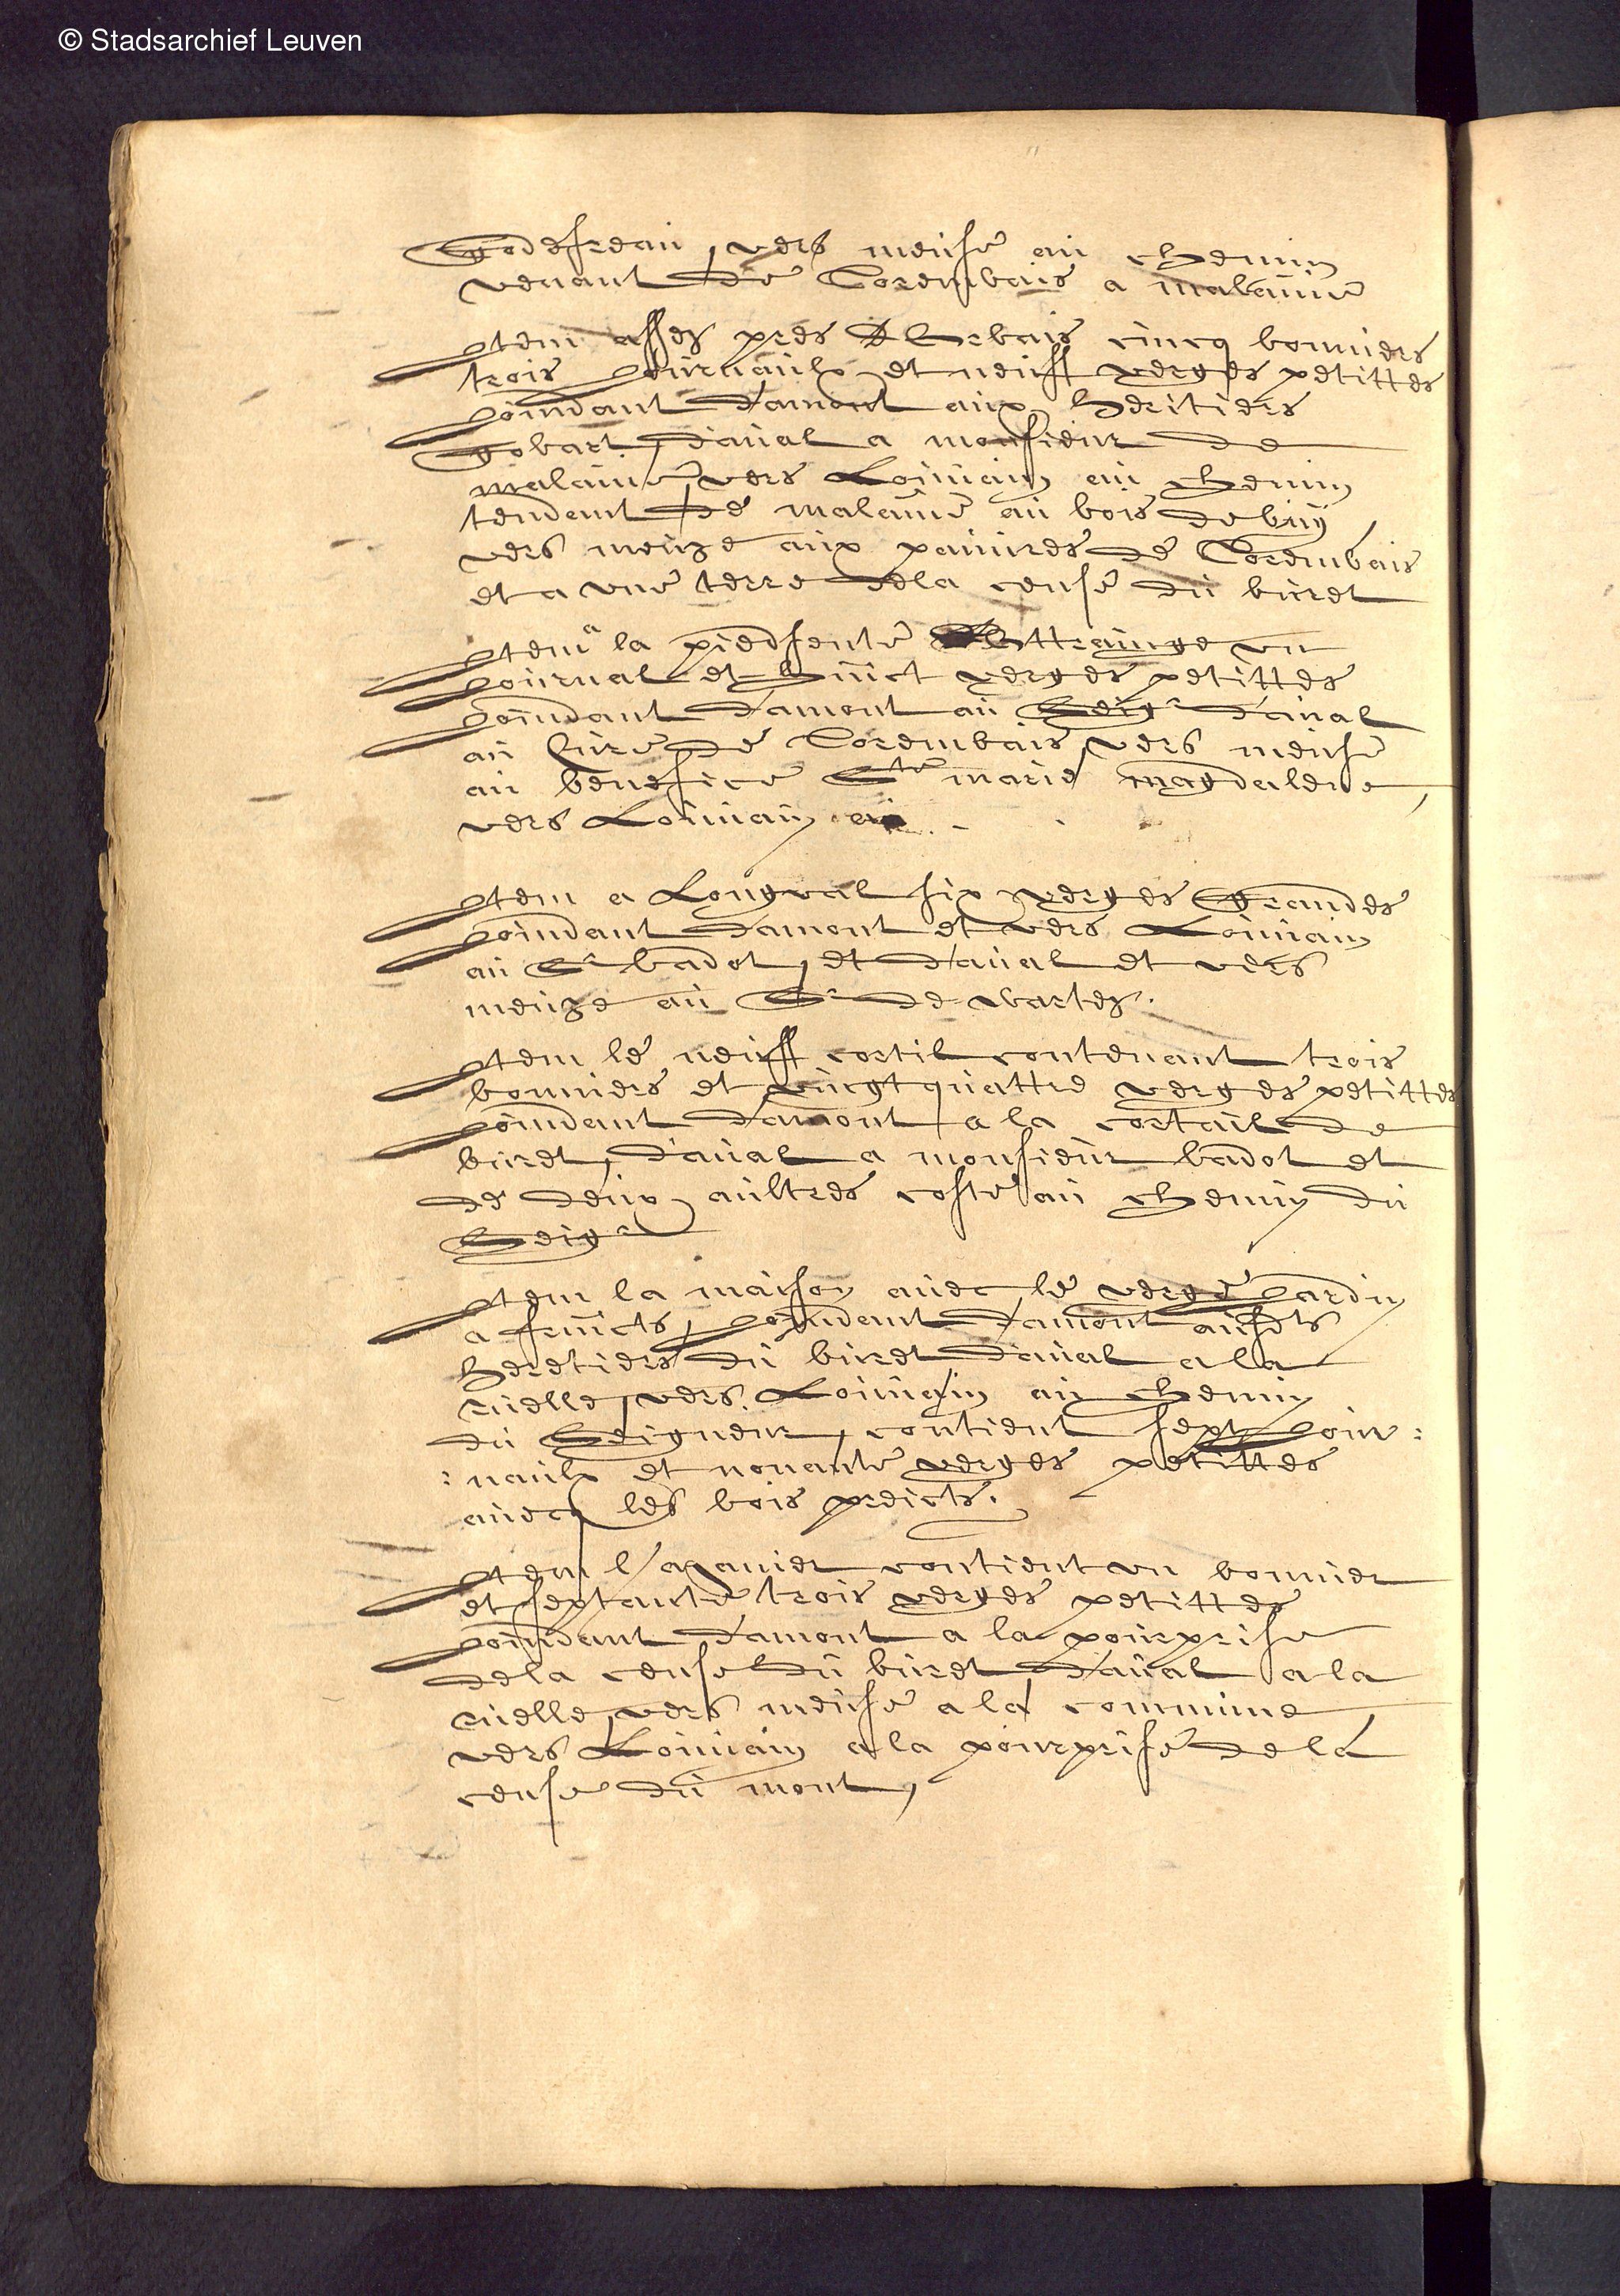 © Stadsarchief Leuven
Godefreau, vers meuse au chemin
venant de Corembais a malaime
Item assez pres d'Herbais cincq bonniers
trois Journaulx et neufft verges petittes
Joindant d'amont aux heritiers
Gobart, d'aual a monsieur de
malaiue vers Louuain au chemin
tendant de malaiue au bois de buÿ,
vers meuze aux pauures de Corembais
et a une terre dela cense du buret
Item a la piedsente un
Journal et huict verges petittes
Joindant d'amont au Seigr d'aual
au Curé de Corembais, vers meuse
au benefice Ste marie magdalene,
vers Louuain au
Item a Longval six verges Grandes
Joindant d'amont et vers Louuain
au Sr badot, et d'aual et vers
meuze au Sr de wartez.
Item le neufft cortil contenant trois
bonniers et vingtquattre verges petittes
Joindant d'amont a la cortail de
buret, d'aual a monsieur badot et
de deux aultres costé au chemin du
Seigr
Item la maison auec le vergé Jardin
a fruicts, Joindant d'amont ausdts
heretiers du buret d'aual a la
ruelle, vers Louuain au chemin
du Seigneur, contient sept Jour:
:naulx et nonante verges petittes
auecq les bois predicts.
Item l'aXauier contient un bonnier
et septante trois verges petittes
Joindant d'amont a la pourprise
dela cense du buret d'aual a la
ruelle, vers meuse a la commune,
vers Louuain a la pourprise de la
cense du mont,